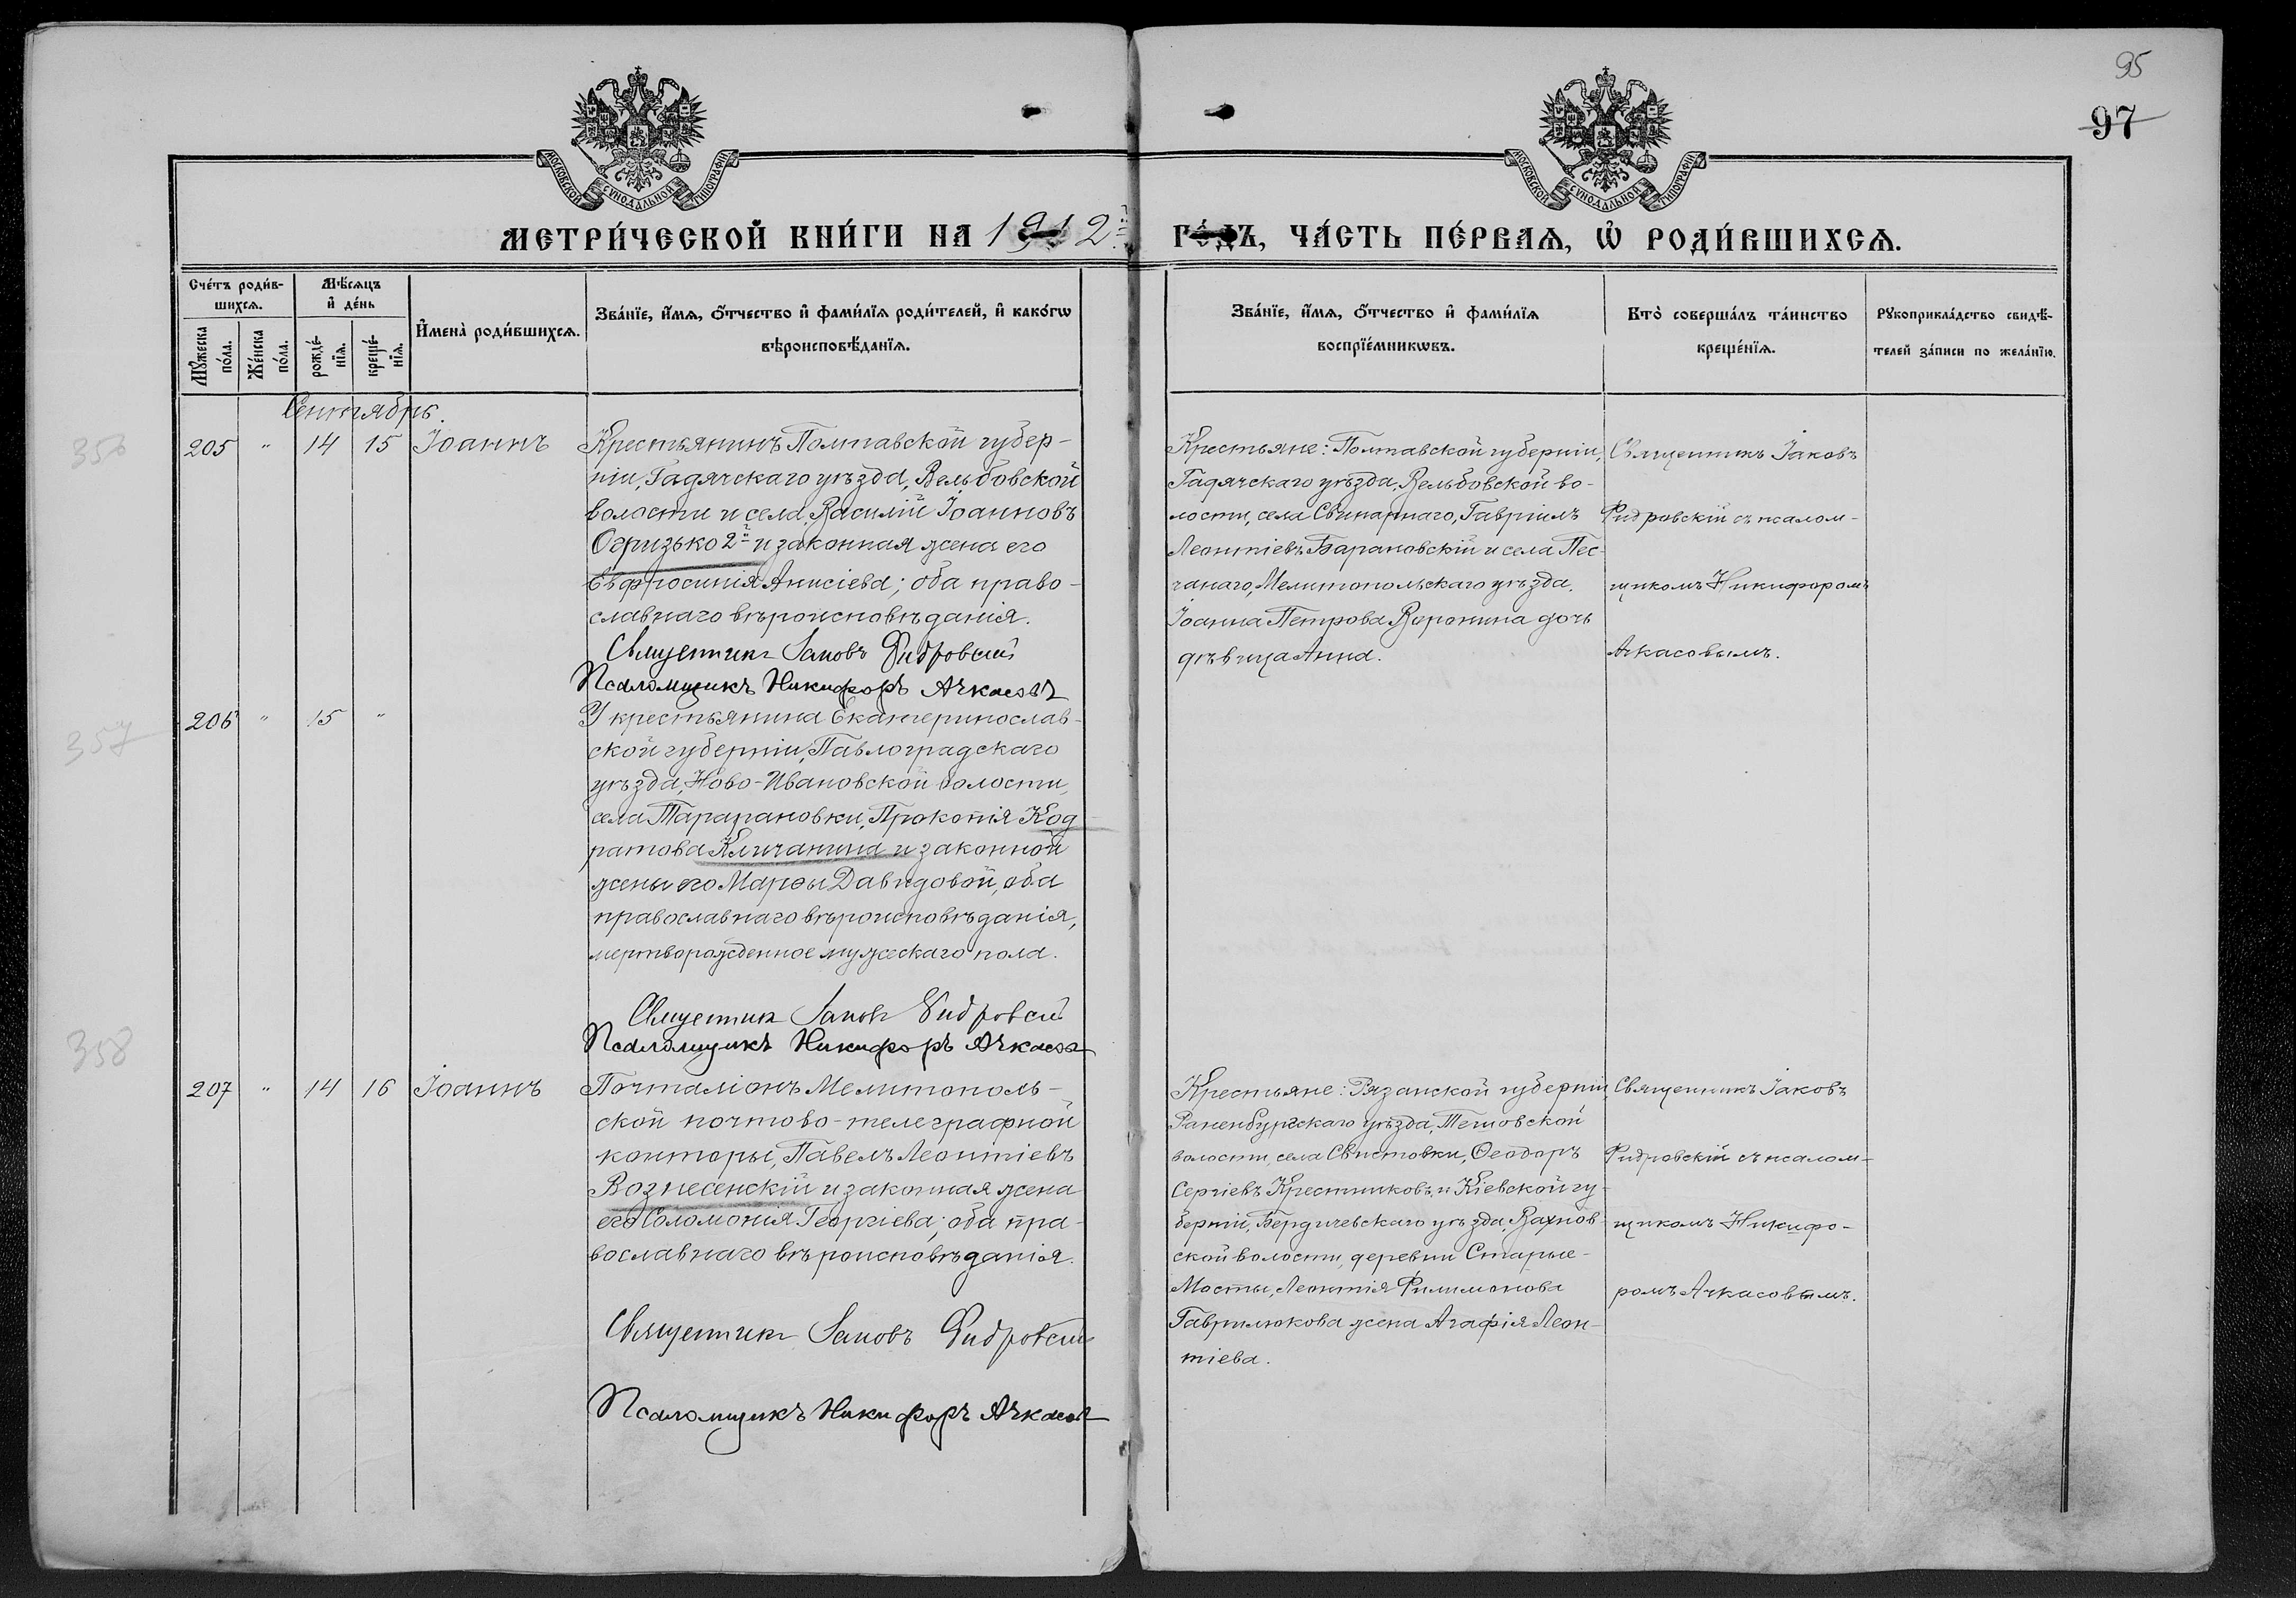 95
97
МОСКОВСКОЙ СУНОДАЛЬНОЙ ТИПОГРАФІИ
МОСКОВСКОЙ СУНОДАЛЬНОЙ ТИПОГРАФІИ
МЕТРИ́ЧЕСКОЙ КНИ́ГИ НА 1912й ГО́ДЪ, ЧА́СТЬ ПЕ́РВАѦ, Ѡ РОДИ́ВШИХСѦ.
Счéтъ роди́в-
шихсѧ.
Мꙋ́жеска
по́ла.
Же́нска
по́ла.
Мѣ́сѧцъ
и҆ де́нь
рожде́-
нїѧ.
креще́-
нїѧ.
И҆мена̀ роди́вшихсѧ.
Зва́нїе, и҆́мѧ, ѻ҆́тчество и҆ фами́лїѧ роди́телей, и҆ како́гѡ
вѣроисповѣ́данїѧ.
Зва́нїе, и҆́мѧ, ѻ҆́тчество и҆ фами́лїѧ
воспрїе́мникѡвъ.
Кто̀ соверша́лъ та́инство
креще́нїѧ.
Рꙋкоприкла́дство свидѣ́-
телей за́писи по жела́нїю.
Сентябрь.
356
205 " 14 15 Іоаннъ
Крестьянинъ Полтавской губер-
ніи, Гадячскаго уѣзда, Вельбовской
волости и села, Василій Іоанновъ
Огризько 2й и законная жена его
Евфросинія Анисіева; оба право-
славнаго вѣроисповѣданія.
Священникъ Іаковъ Фидровскій
Псаломщикъ Никифоръ Ачкасовъ
Крестьяне: Полтавской губерніи,
Гадячскаго уѣзда, Вельбовской во-
лости, села Свинарнаго, Гавріилъ
Леонтіевъ Барановскій и села Пес-
чанаго, Мелитопольскаго уѣзда,
Іоанна Петрова Воронина дочь
дѣвица Анна.
Священникъ Іаковъ
Фидровскій съ псалом-
щикомъ Никифоромъ
Ачкасовымъ.
357
206 " 15 "
У крестьянина Екатеринослав-
ской губерніи, Павлоградскаго
уѣзда, Ново-Ивановской волости,
села Тарарановки, Прокопія Код
ратова Кличанина и законной
жены его Марѳы Давидовой, оба
православнаго вѣроисповѣданія,
мертворожденное мужескаго пола.
Священникъ Іаковъ Фидровскій
Псаломщикъ Никифоръ Ачкасовъ
358
207 " 14 16 Іоаннъ
Почталіонъ Мелитополь-
ской почтово-телеграфной
конторы, Павелъ Леонтіевъ
Вознесенскій и законная жена
его Соломонія Георгіева; оба пра-
вославнаго вѣроисповѣданія.
Священникъ Іаковъ Фидровскій
Псаломщикъ Никифоръ Ачкасовъ
Крестьяне: Рязанской губерніи,
Раненбургскаго уѣзда, Тешовской
волости, села Свистовки, Ѳеодоръ
Сергіевъ Крестниковъ и Кіевской гу-
берніи, Бердичевскаго уѣзда, Вахнов-
ской волости, деревни Старые-
Мосты, Леонтія Филимонова
Гаврилюкова жена Агафія Леон-
тіева.
Священникъ Іаковъ
Фидровскій съ псалом-
щикомъ Никифо-
ромъ Ачкасовымъ.